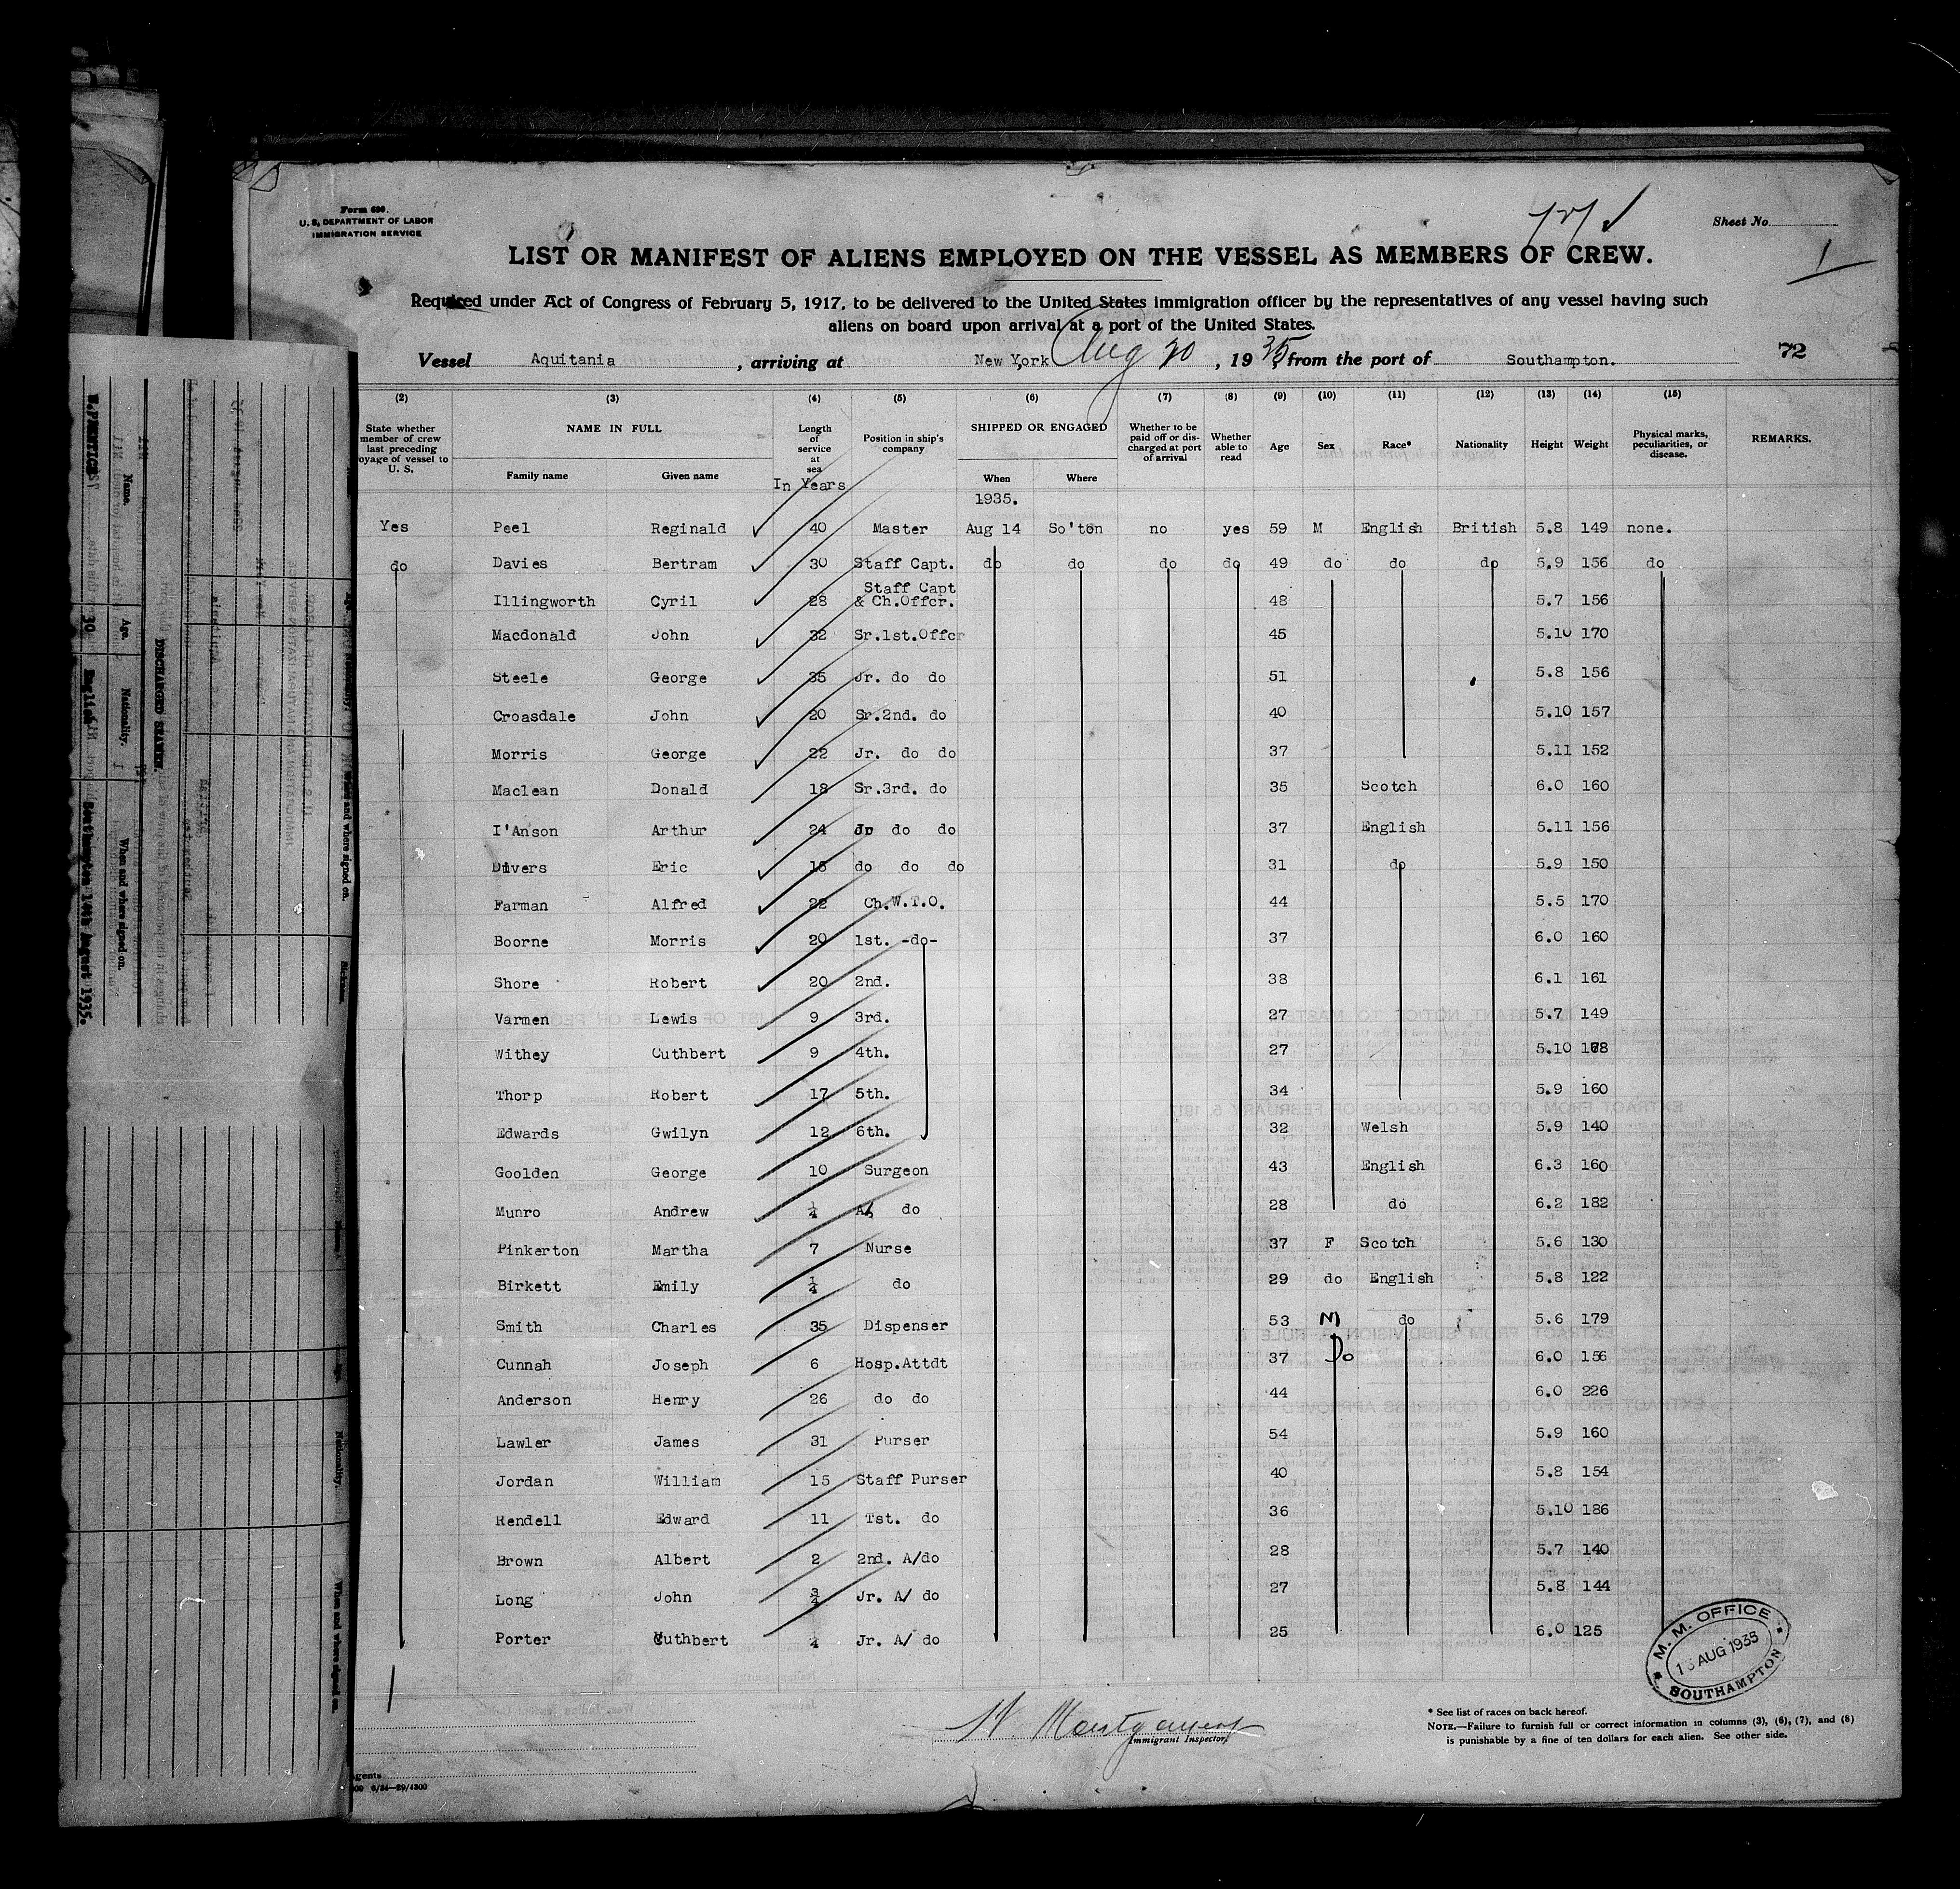 Form 680.
U. S. DEPARTMENT OF LABOR
IMMIGRATION SERVICE
Sheet No.
1
LIST OR MANIFEST OF ALIENS EMPLOYED ON THE VESSEL AS MEMBERS OF CREW.
Required under Act of Congress of February 5, 1917, to be delivered to the United States immigration officer by the representatives of any vessel having such
aliens on board upon arrival at a port of the United States.
Vessel Aquitania, arriving at New York Aug 20, 1935, from the port of Southampton. 72
(2) (3) (4) (5) (6) (7) (8) (9) (10) (11) (12) (13) (14) (15)
State whether member of crew last preceding oyage of vessel to U. S. NAME IN FULL Family name Given name Length of service at sea In Years Position in ship's company SHIPPED OR ENGAGED When Where Whether to be paid off or discharged at port of arrival Whether able to read Age Sex Race* Nationality Height Weight Physical marks, peculiarities, or disease. REMARKS.
1935.
Yes Peel Reginald 40 Master Aug 14 So'ton no yes 59 M English British 5.8 149 none.
do Davies Bertram 30 Staff Capt. do do do do 49 do do do 5.9 156 do
Illingworth Cyril 28 Staff Capt & Ch.Offcr. 48 5.7 156
Macdonald John 32 Sr.1st.Offcr 45 5.10 170
Steele George 35 Jr. do do 51 5.8 156
Croasdale John 20 Sr.2nd. do 40 5.10 157
Morris George 22 Jr. do do 37 5.11 152
Maclean Donald 18 Sr.3rd. do 35 Scotch 6.0 160
I'Anson Arthur 24 Jr do do 37 English 5.11 156
Divers Eric 15 do do do 31 do 5.9 150
Farman Alfred 22 Ch.W.T.O. 44 5.5 170
Boorne Morris 20 1st. -do- 37 6.0 160
Shore Robert 20 2nd. 38 6.1 161
Varmen Lewis 9 3rd. 27 5.7 149
Withey Cuthbert 9 4th. 27 5.10
Thorp Robert 17 5th. 34 5.9 160
Edwards Gwilyn 12 6th. 32 Welsh 5.9 140
Goolden George 10 Surgeon 43 English 6.3 160
Munro Andrew ¼ A/ do 28 do 6.2 182
Pinkerton Martha 7 Nurse 37 F Scotch 5.6 130
Birkett Emily ¼ do 29 do English 5.8 122
Smith Charles 35 Dispenser 53 M do 5.6 179
Cunnah Joseph 6 Hosp.Attdt 37 Do 6.0 156
Anderson Henry 26 do do 44 6.0 226
Lawler James 31 Purser 54 5.9 160
Jordan William 15 Staff Purser 40 5.8 154
Rendell Edward 11 1st. do 36 5.10 186
Brown Albert 2 2nd. A/do 28 5.7 140
Long John ¾ Jr. A/ do 27 5.8 144
Porter Cuthbert ¼ Jr. A/ do 25 6.0 125
M. M. OFFICE
AUG 1935
SOUTHAMPTON
W. Montgomery
Immigrant Inspector.
* See list of races on back hereof.
NOTE.—Failure to furnish full or correct information in columns (3), (6), (7), and (8)
is punishable by a fine of ten dollars for each alien. See other side.
gents
00 6/34—29/4300
Name. Age. Nationality. When and where signed on.
30 English Southampton 14th August 1935.
DISCHARGED SEAMEN.